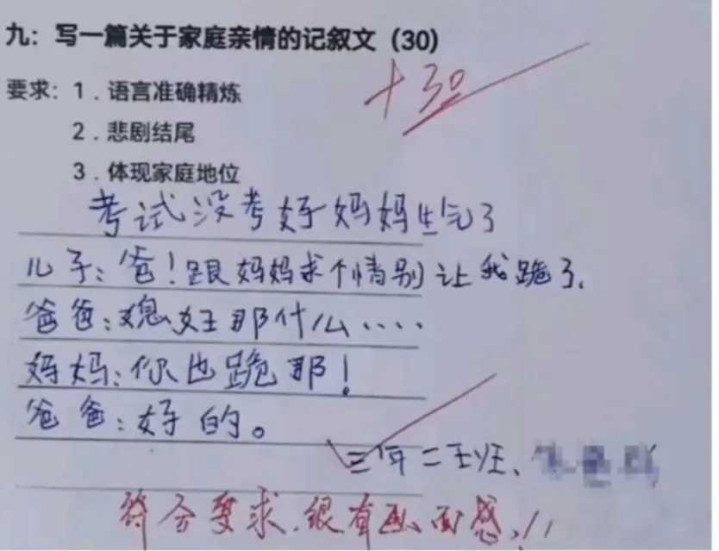 九：写一篇关于家庭亲情的记叙文（30）
+30
要求：1．语言准确精炼
2．悲剧结尾
3．体现家庭地位
考试没考好妈妈生气了
儿子：爸！跟妈妈求个情别让我跪了.
爸爸：媳妇那什么....
妈妈：你也跪那！
爸爸：好的。
三年二班、
符合要求.很有画面感,!!